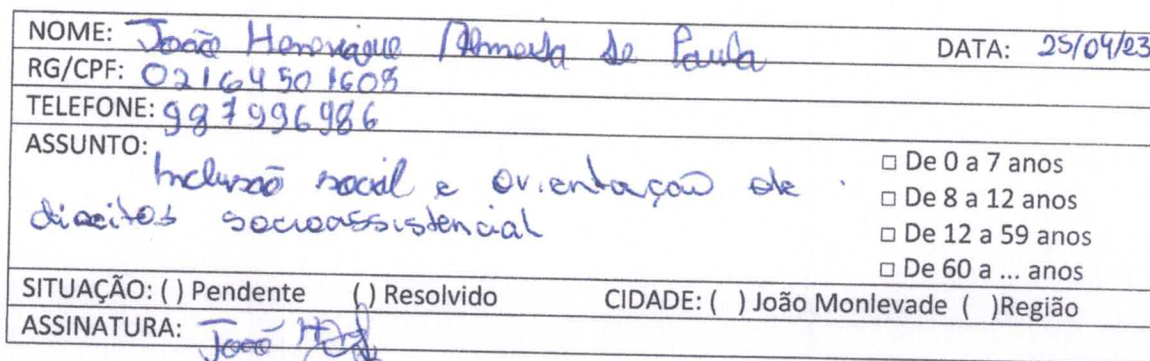 NOME: João Henrique Almeida de Paula DATA: 25/04/23
RG/CPF: 02164501608
TELEFONE: 987996986
ASSUNTO:
Inclusão social e orientação de
direitos socioassistencial
□ De 0 a 7 anos
□ De 8 a 12 anos
□ De 12 a 59 anos
□ De 60 a ... anos
SITUAÇÃO: ( ) Pendente ( ) Resolvido CIDADE: ( ) João Monlevade ( )Região
ASSINATURA: João